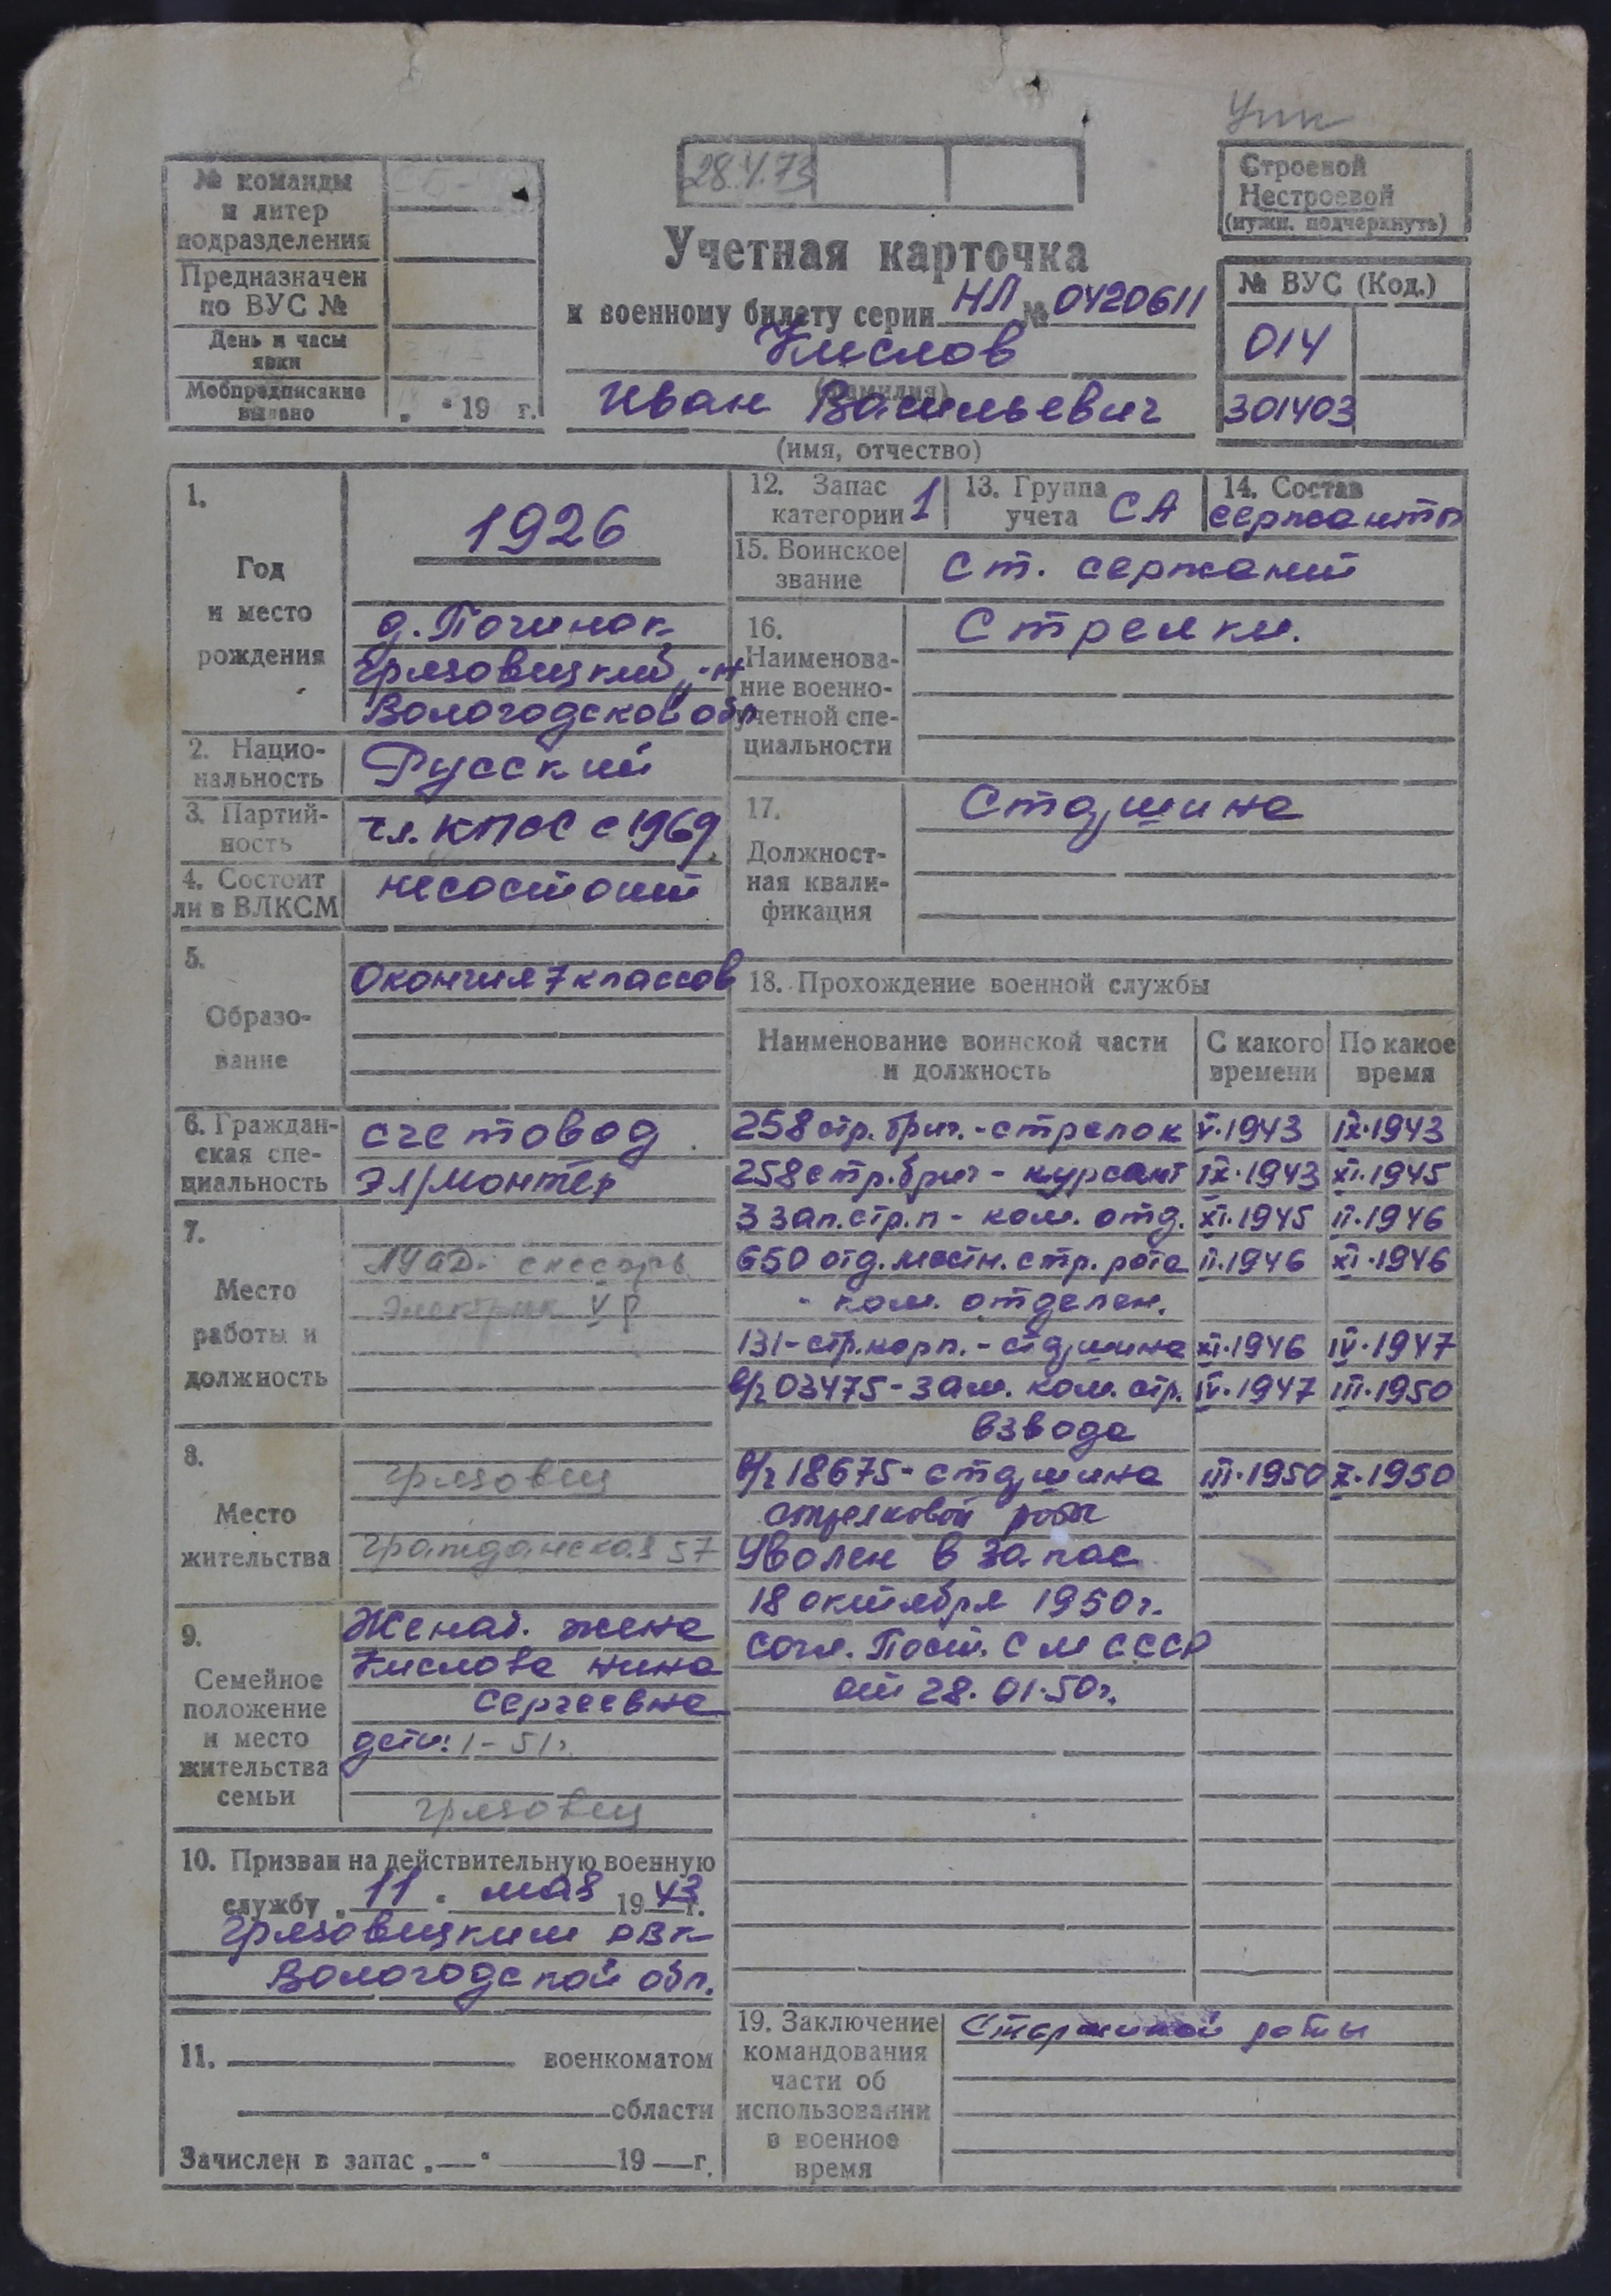 Упк
28.V.73
№ команды
и литер
подразделения
Предназначен
по ВУС №
День и часы
явки
Мобпредписание
выдано „ “ 19 г.
Строевой
Нестроевой
(нужн. подчеркнуть)
Учетная карточка
к военному билету серии НЛ № 0420611
Кислов
(фамилия)
Иван Васильевич
(имя, отчество)
№ ВУС (Код.)
014
301403
1.
Год
и место
рождения
1926
д. Починок
Грязовецкий р-н
Вологодской обл
2. Нацио-
нальность
Русский
3. Партий-
ность
чл. КПСС с 1969
4. Состоит
ли в ВЛКСМ
не состоит
5.
Образо-
вание
Окончил 7 классов
6. Граждан-
ская спе-
циальность
счетовод.
Эл/монтёр
7.
Место
работы и
должность
слесарь
Электрик V р
8.
Место
жительства
Грязовец
Гражданская 57
9.
Семейное
положение
и место
жительства
семьи
Женат. жена
Кислова Нина
Сергеевна
дети: 1 - 51г.
Грязовец
10. Призван на действительную военную
службу „ 11 “ мая 19 43 г.
Грязовецким РВК
Вологодской обл.
11. военкоматом
области
Зачислен в запас „ — “ 19 — г.
12. Запас
категории 1
13. Группа
учета СА
14. Состав
сержанты
15. Воинское
звание
Ст. сержант
16.
Наименова-
ние военно-
учетной спе-
циальности
Стрелки.
17.
Должност-
ная квали-
фикация
Старшина
18. Прохождение военной службы
Наименование воинской части
и должность
С какого
времени
По какое
время
258 стр. бриг. - стрелок V.1943 IX.1943
258 стр. бриг - курсант IX.1943 XI.1945
3 зап. стр. п - ком. отд. XI.1945 II.1946
650 отд. местн. стр. рота II.1946 XI.1946
- ком. отделен.
131 - стр. корп. - старшина XI.1946 IV.1947
в/ч 03475 - зам. ком. стр. IV.1947 III.1950
взвода
в/ч 18675 - старшина III.1950 X.1950
стрелковой роты
Уволен в запас
18 октября 1950 г.
согл. Пост. СМ СССР
от 28.01.50г.
19. Заключение
командования
части об
использовании
в военное
время
Старшиной роты